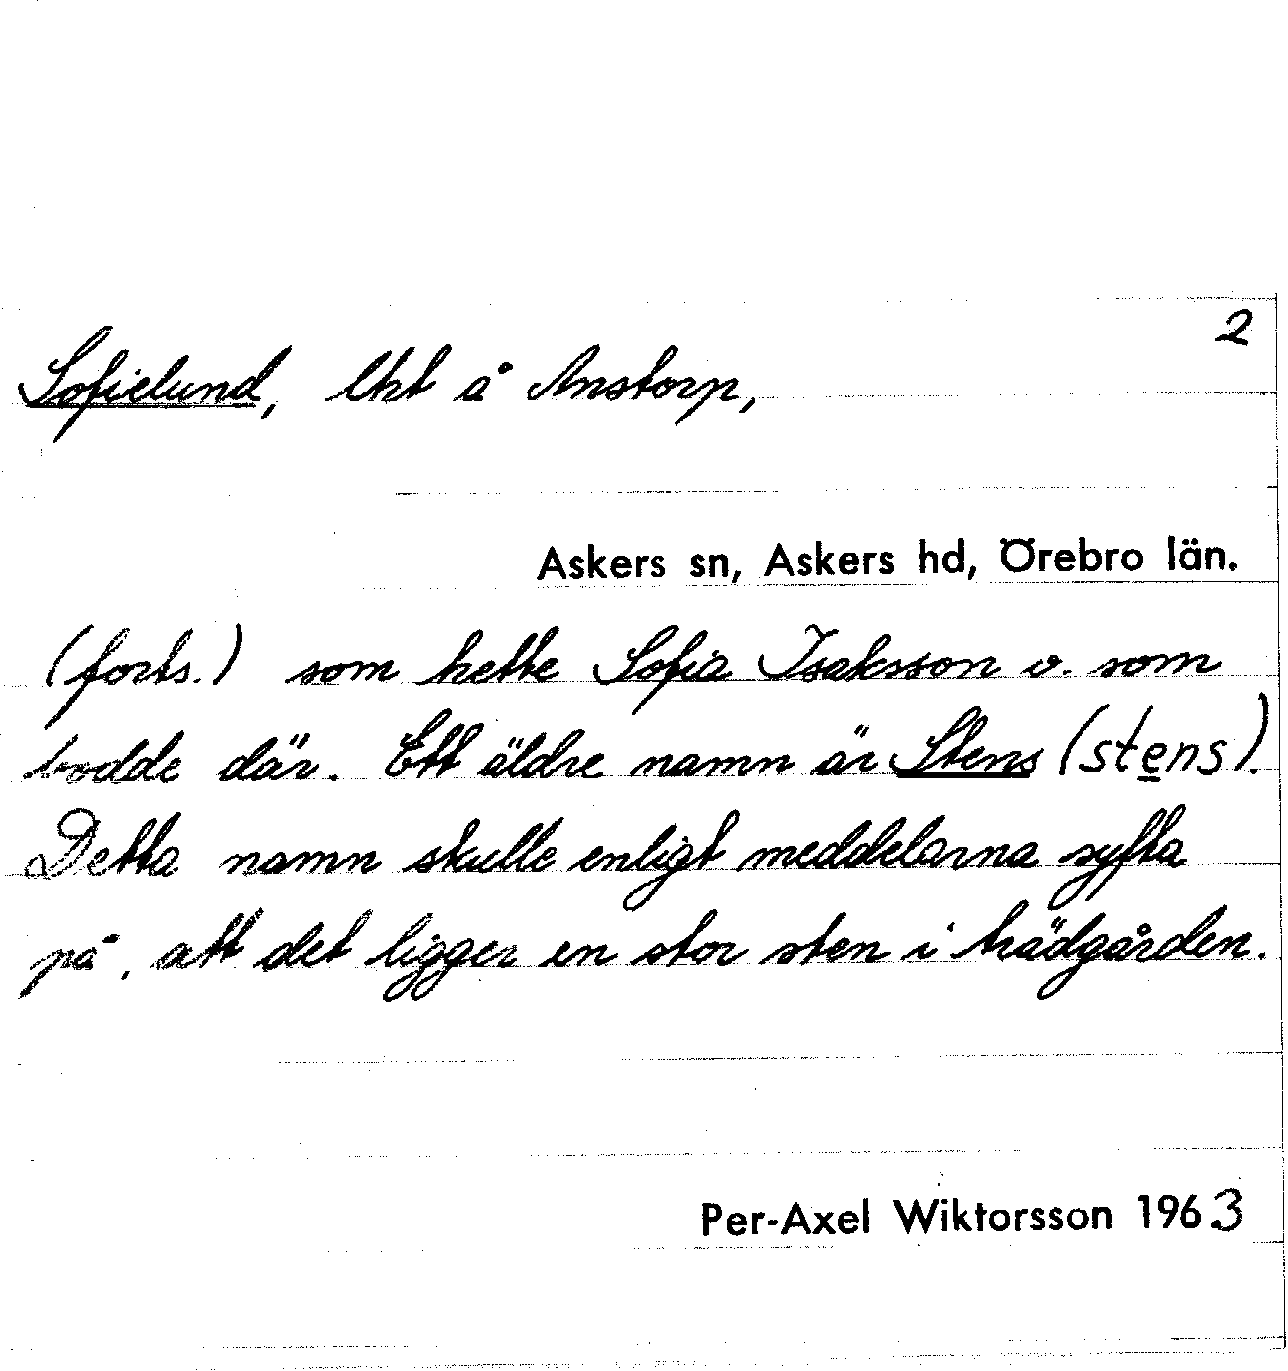 2
Sofielund, lht å Anstorp,
Askers sn, Askers hd, Örebro län.
(forts.) som hette Sofia Isaksson o. som
bodde där. Ett äldre namn är Stens (stens).
Detta namn skulle enligt meddelarna syfta
på, att det ligger en stor sten i trädgården.
Per-Axel Wiktorsson 1963